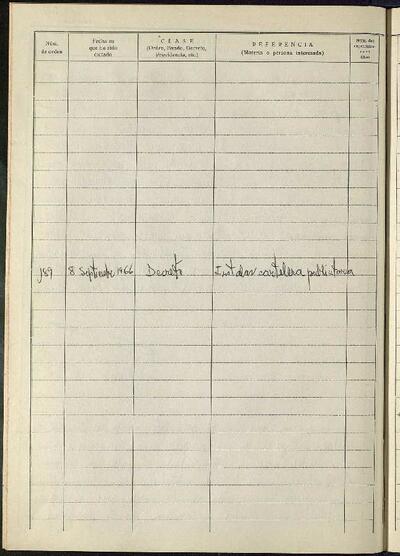 Núm. de orden
Fecha en que ha sido dictado
CLASE
(Orden, Bando, Decreto, Providencia, etc.)
REFERENCIA
(Materia o persona interesada)
Núm. del
189 8 Septiembre 1966 Decreto Instalar cartelera publicitaria